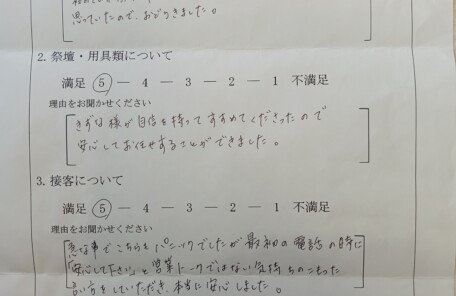 思っていたので、おどろきました。
2. 祭壇・用具類について
満足 ⑤ ― 4 ― 3 ― 2 ― 1 不満足
理由をお聞かせください
きずな様が自信を持ってすすめてくださったので
安心してお任せすることができました。
3. 接客について
満足 ⑤ ― 4 ― 3 ― 2 ― 1 不満足
理由をお聞かせください
急な事でこちらもパニックでしたが最初の電話の時に
「安心して下さい」と営業トークではない気持ちのこもった
言い方をしていただき、本当に安心しました。